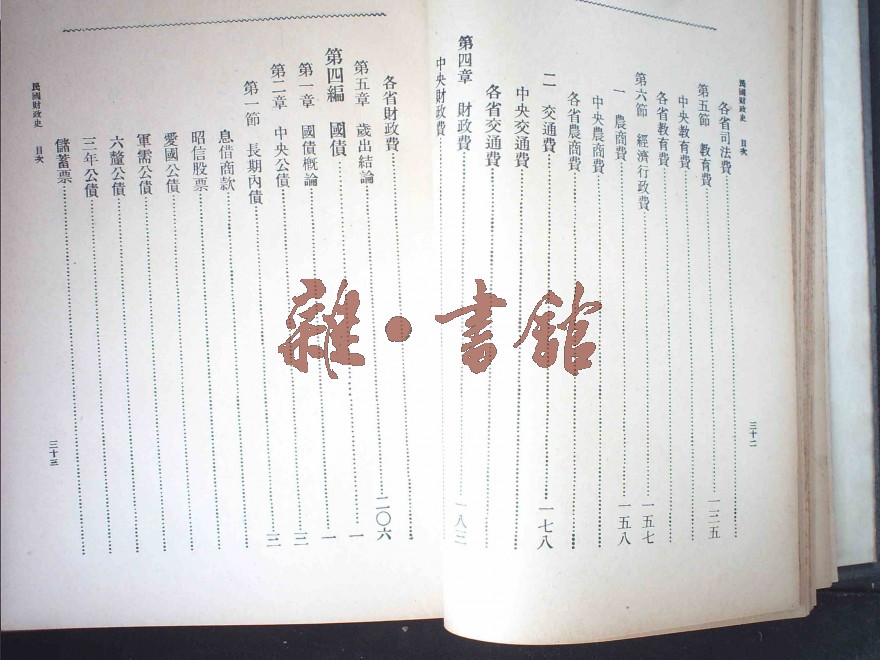 民國財政史 目次
各省司法費
第五節 教育費 一三五
中央教育費
各省教育費
第六節 經濟行政費 一五七
一 農商費 一五八
中央農商費
各省農商費
二 交通費 一七八
中央交通費
各省交通費
第四章 財政費 一八三
中央財政費
三十二
各省財政費
第五章 歲出結論 二〇六
第四編 國債 一
第一章 國債概論 一
第二章 中央公債 三
第一節 長期內債 三
息借商款
昭信股票
愛國公債
軍需公債
六釐公債
三年公債
儲蓄票
民國財政史 目次
三十三
雜·書館